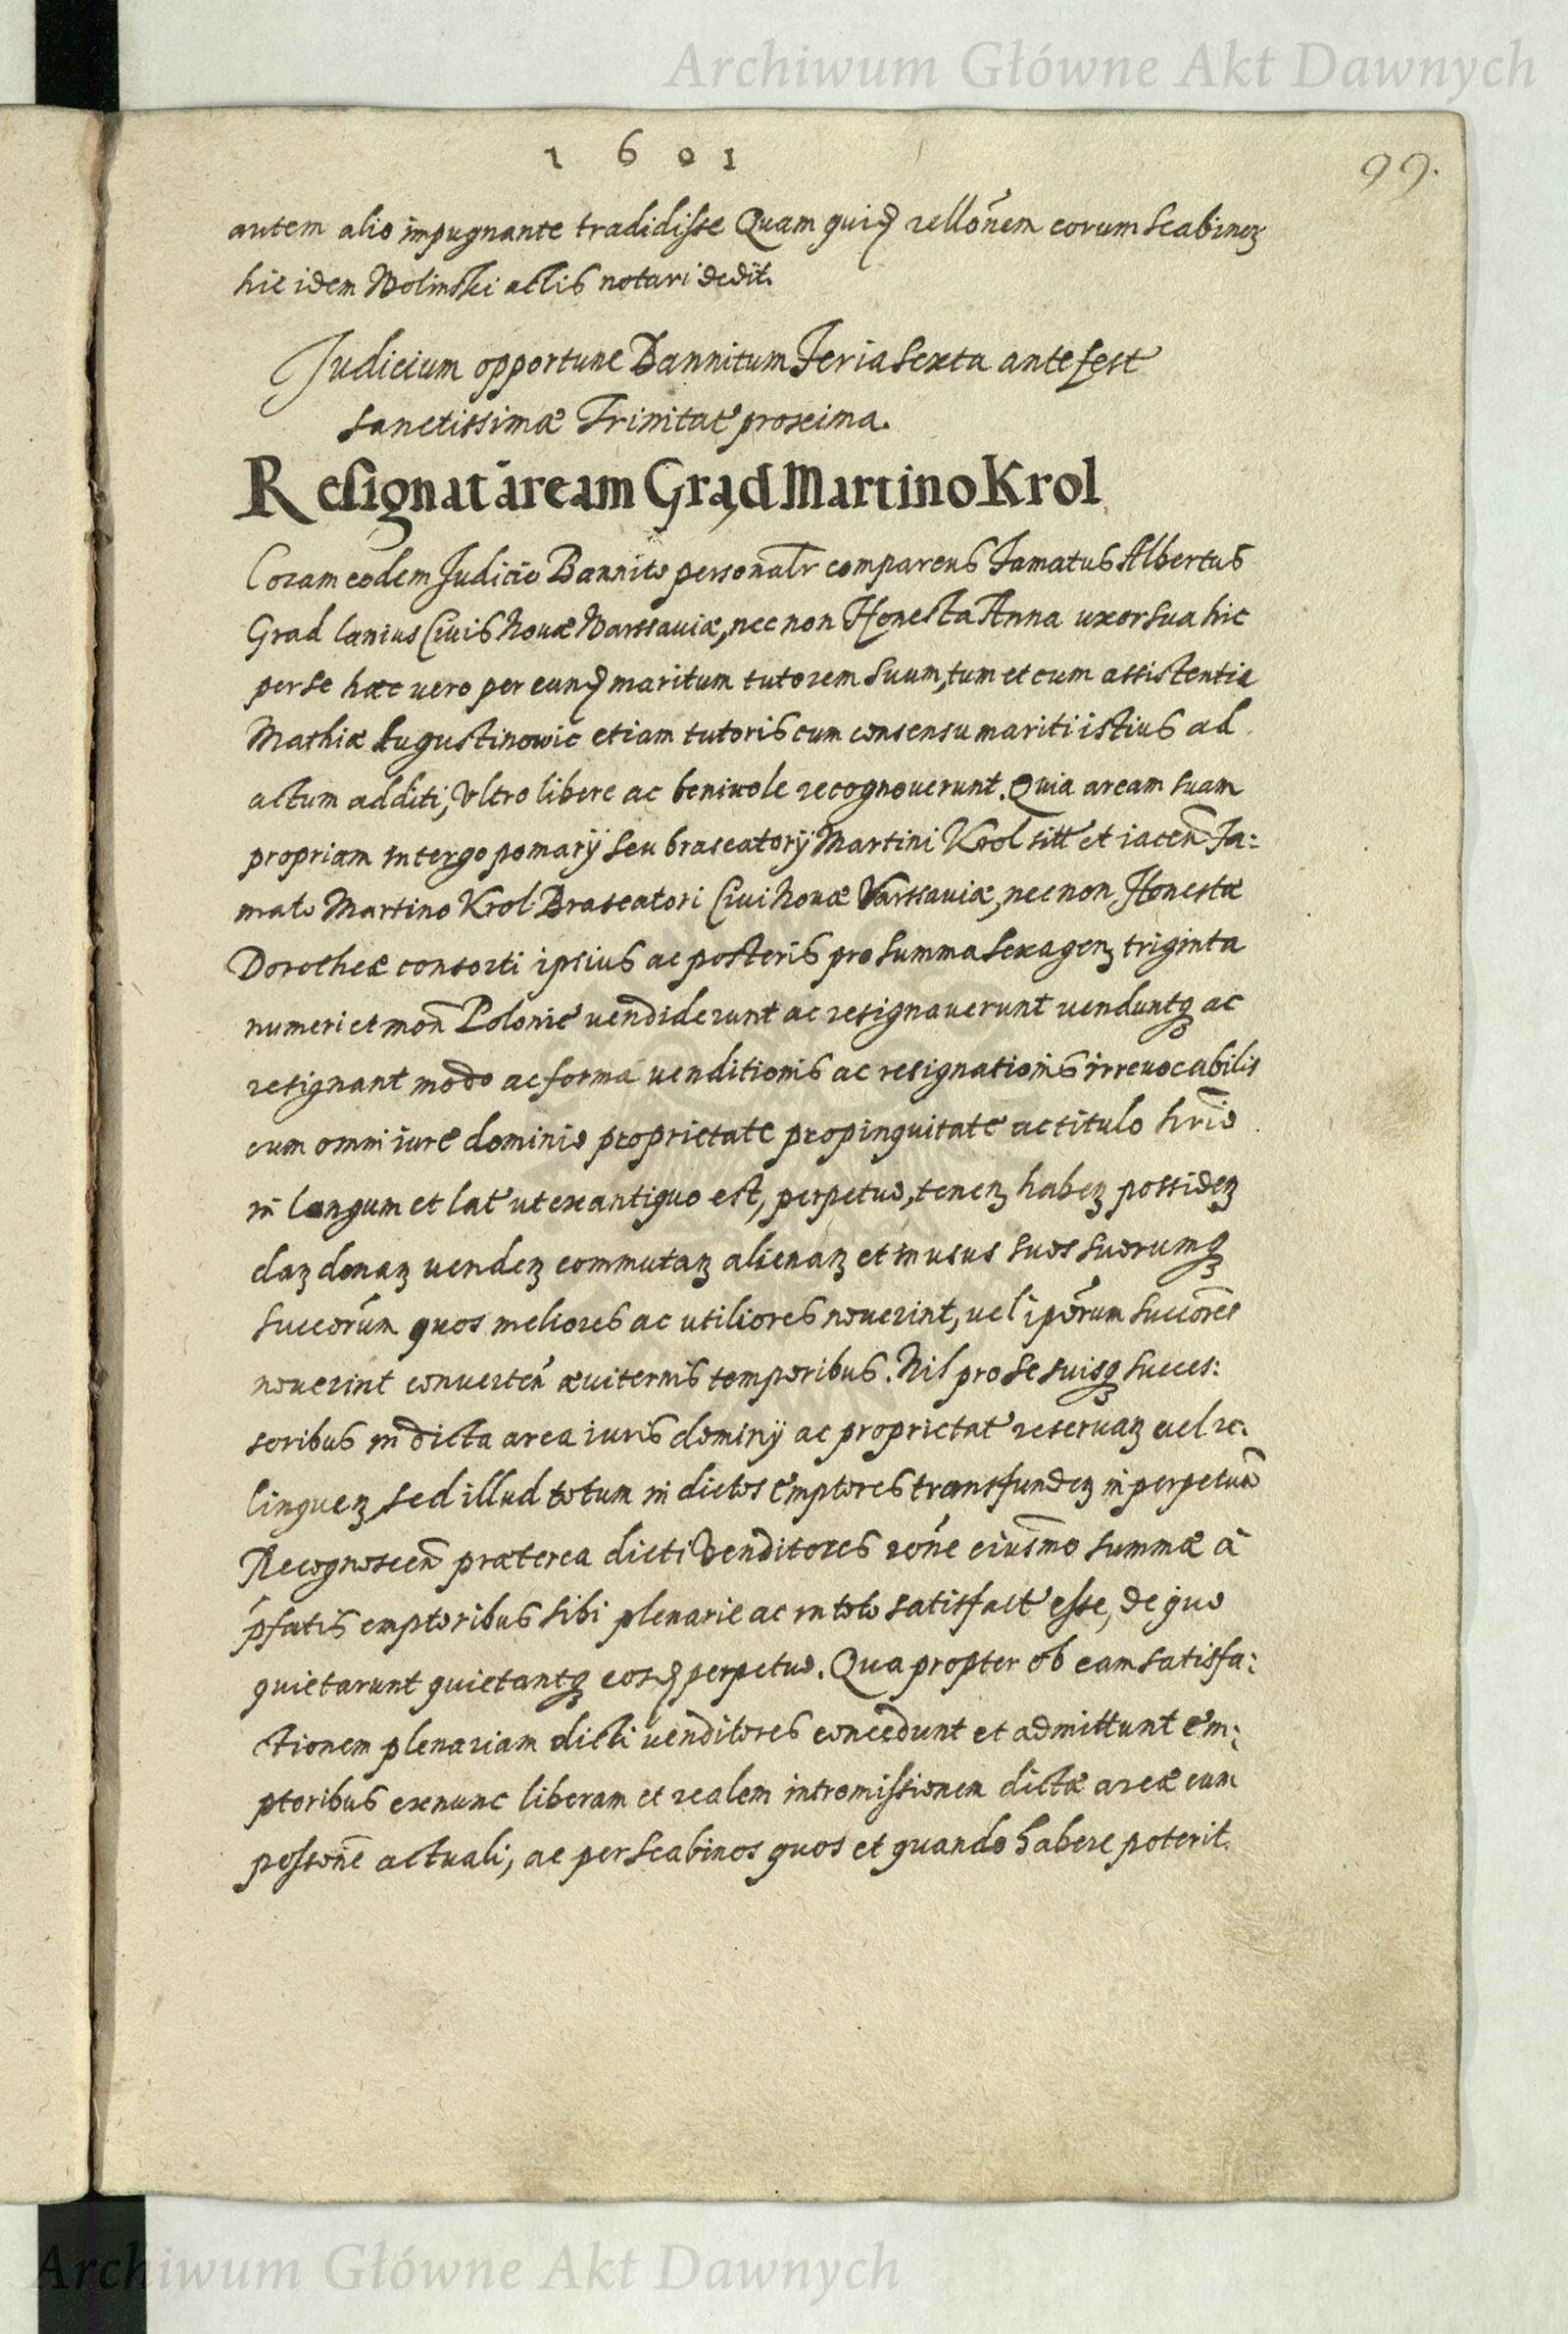 Archiwum Główne Akt Dawnych
1601
99.
autem alio impugnante tradidisse Quam quiđ rellonem eorum Scabinoꝝ
hic idem Wolinski actis notari dedit.
Judicium opportune Bannitum Feria Sexta ante fest
sanctissimæ Trinitat proxima.
Resignat aream Grąd Martino Krol
Coram eodem Judicio Bannito personalr comparens Famatus Albertus
Grad lanius Civis Novæ Warssaviæ, nec non Honesta Anna uxor sua hic
per se hæc vero per eunđ maritum tutorem suum, tum et cum assistentia
Mathiæ Augustinowic etiam tutoris cum consensu mariti istius ad
actum additi, Ultro libere ac benivole recognoverunt. Quia aream suam
propriam in tergo pomarÿ seu braseatorÿ Martini Krol sitt et iacen̄ Fa:
mato Martino Krol Braseatori Civi Novæ Varssaviæ, nec non Honestæ
Dorotheæ consorti ipsius ac posteris pro summa sexagenꝫ triginta
numeri et mon̄ Polonic vendiderunt ac resignaverunt venduntqꝫ ac
resignant modo ac forma venditionis ac resignationis irrevocabilis
cum omni iure dominio proprietate propinquitate ac titulo hrio
in longum et lat ut ex antiquo est, perpetuo, tenenꝫ habenꝫ possidenꝫ
danꝫ donanꝫ vendenꝫ commutanꝫ alienanꝫ et in usus suos suorumqꝫ
succorum quos meliores ac utiliores noverint, vel ipōrum succores
noverint converten̄ æviternis temporibus. Nil pro se suisqꝫ succes:
soribus in dicta area iuris dominÿ ac proprietat reservanꝫ vel re:
linquenꝫ, sed illud totum in dictos emptores transfundenꝫ in perpetuū
Recognoscen̄ præterea dicti Venditores rōne eiusmō summæ à
p̄fatis emptoribus sibi plenarie ac in toto satisfact esse, de quo
quietarunt quietantqꝫ eosđ perpetuo. Qua propter ob eam satisfa:
ctionem plenariam dicti venditores concedunt et admittunt em:
ptoribus ex nunc liberam et realem intromissionem dictæ areæ cum
possone actuali, ac per Scabinos quos et quando habere poterit.
Archiwum Główne Akt Dawnych